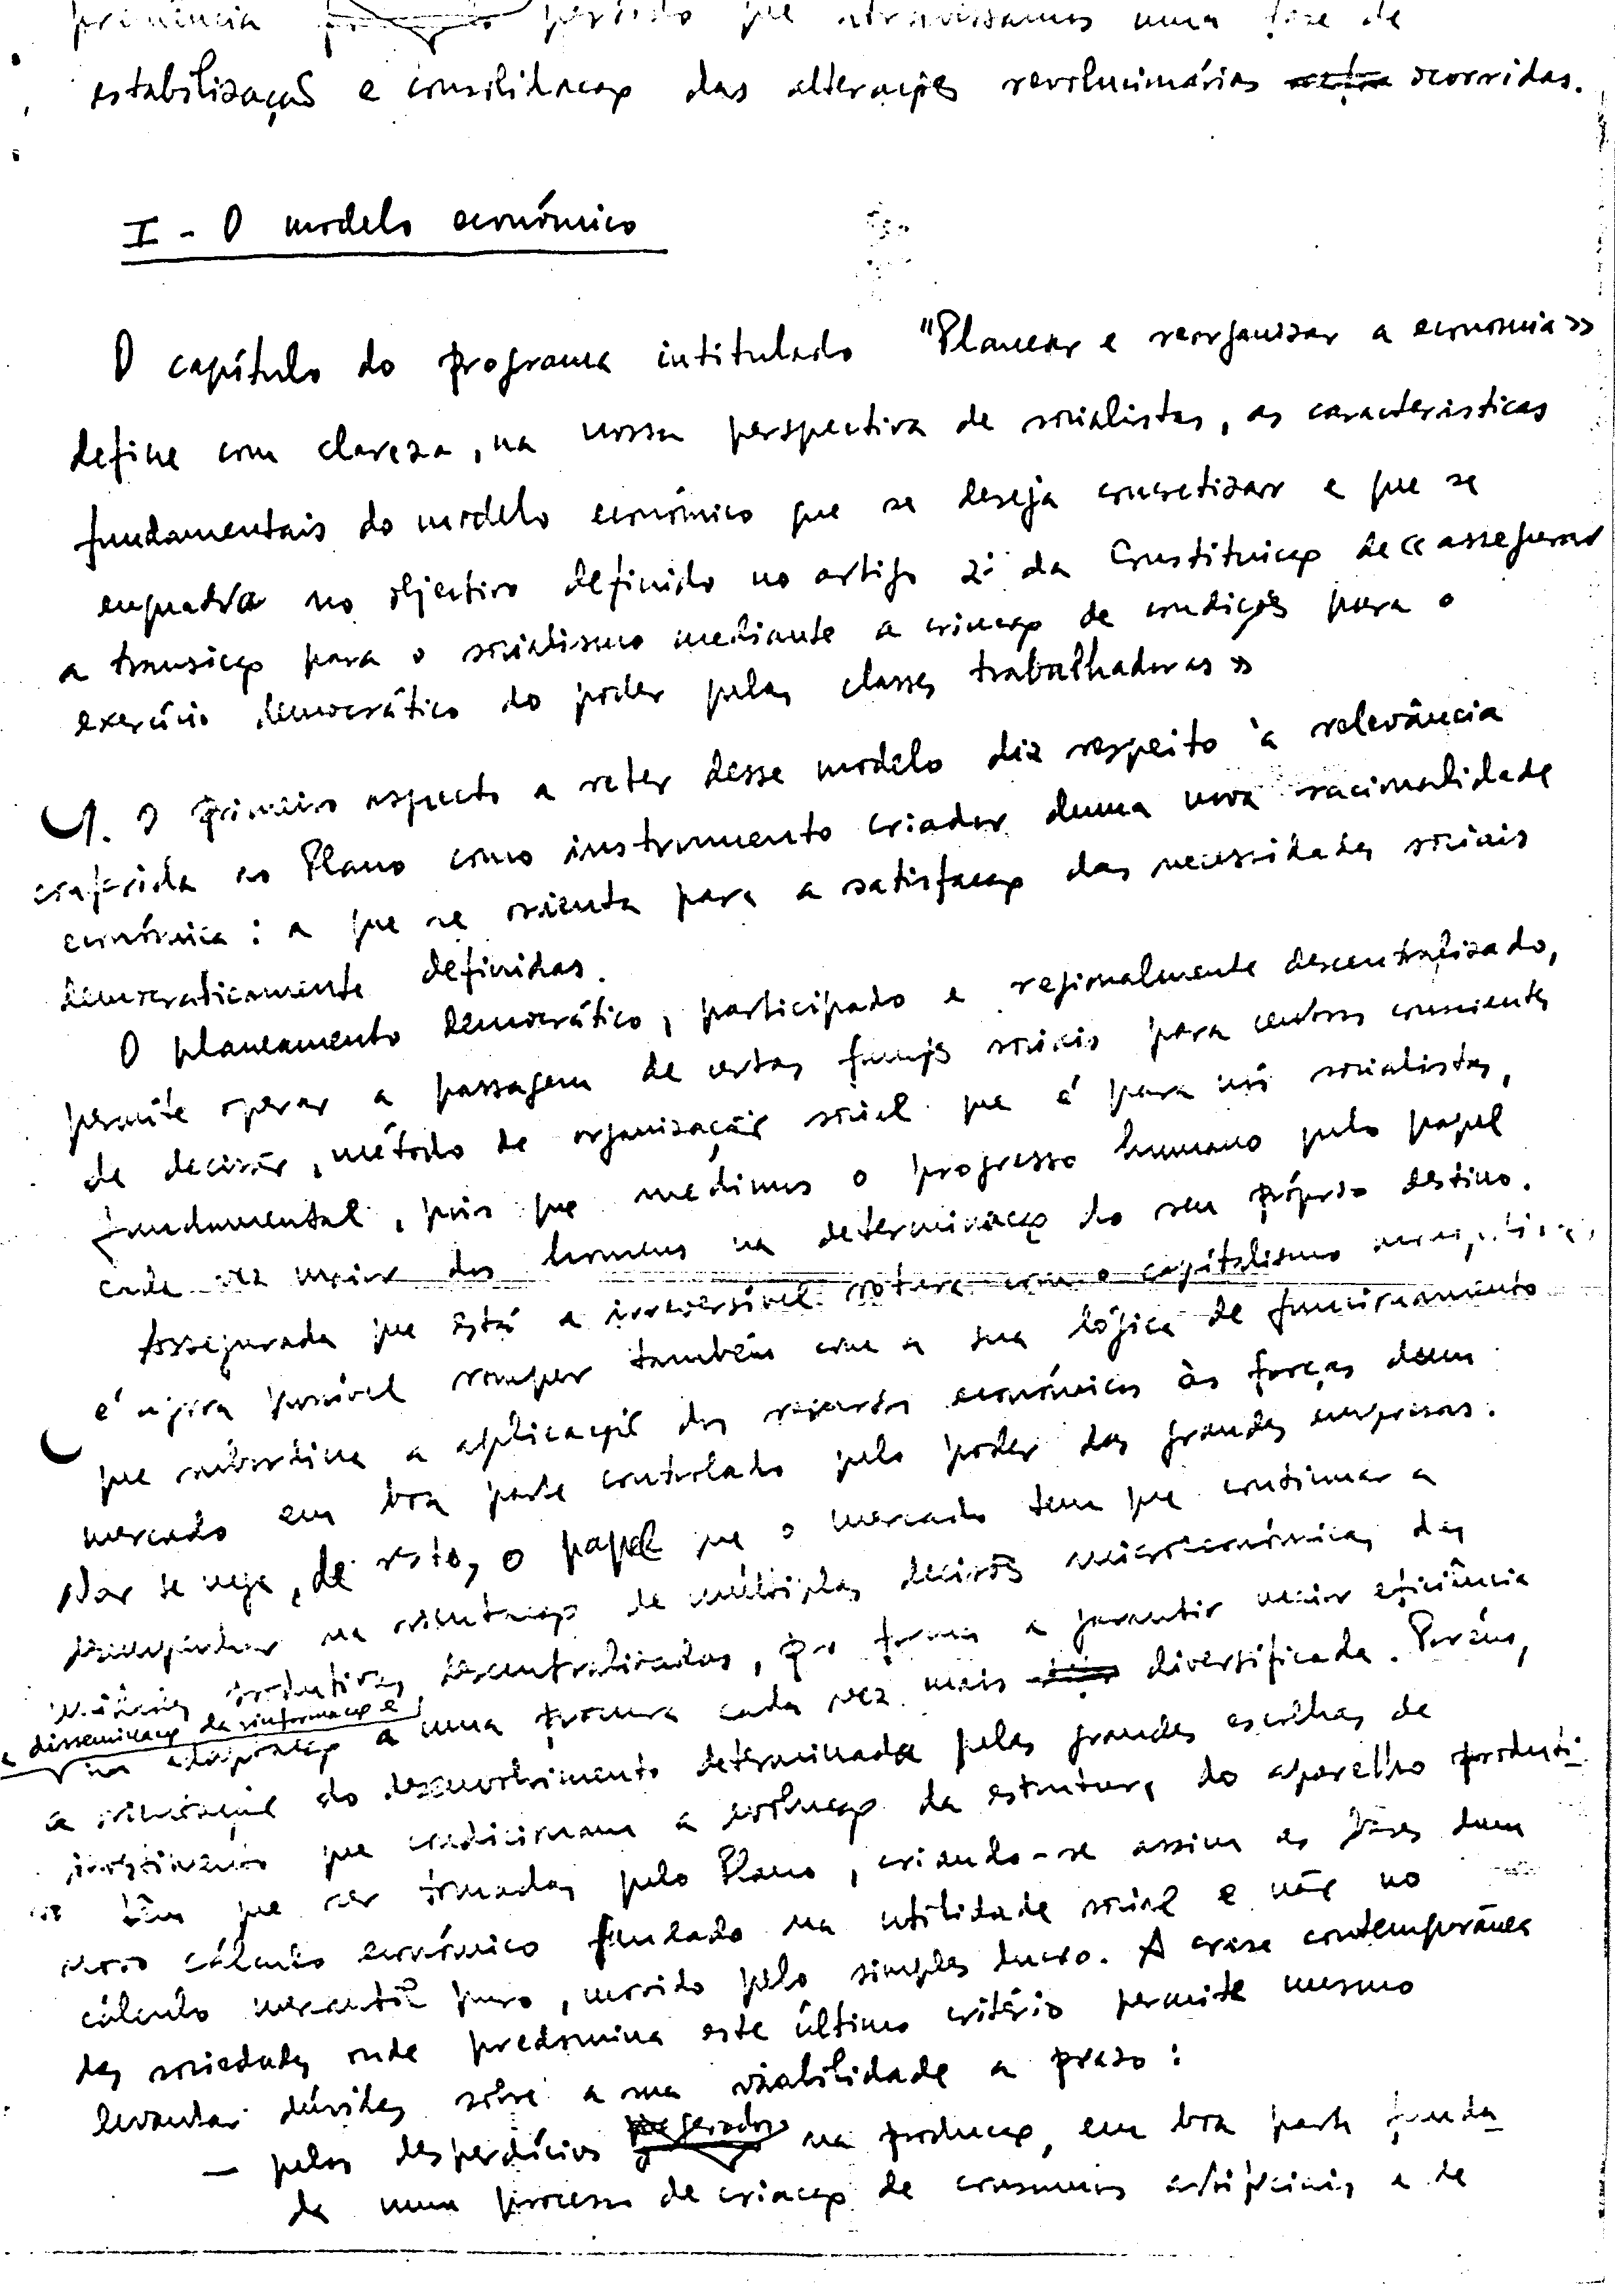 período que atravessamos uma fase de
estabilização e consolidação das alterações revolucionárias ocorridas.
I - O modelo económico
O capítulo do programa intitulado "Planear e reorganizar a economia»
define com clareza, na nossa perspectiva de socialistas, as características
fundamentais do modelo económico que se deseja concretizar e que se
enquadra no objectivo definido no artigo 2º da Constituição de «assegurar
a transição para o socialismo mediante a criação de condições para o
exercício democrático do poder pelas classes trabalhadoras»
1. O primeiro aspecto a reter desse modelo diz respeito à relevância
conferida ao Plano como instrumento criador duma nova racionalidade
económica: a que se orienta para a satisfação das necessidades sociais
democraticamente definidas.
O planeamento democrático, participado e regionalmente descentralizado,
permite operar a passagem de certas funções sociais para centros conscientes
de decisão, método de organização social que é para nós socialistas,
fundamental, pois que medimos o progresso humano pelo papel
cada vez maior dos homens na determinação do seu próprio destino.
Assegurada que está a irreversível rotura com o capitalismo
é agora possível romper também com a sua lógica de funcionamento
que subordina a aplicação dos recursos económicos às forças dum
mercado em boa parte controlado pelo poder das grandes empresas.
Não se nega, de resto, o papel que o mercado tem que continuar a
desempenhar na orientação de múltiplas decisões microeconómicas das
unidades produtivas descentralizadas, por forma a garantir maior eficiência
a disseminação da informação e
na adaptação a uma procura cada vez mais diversificada. Porém,
a orientação do desenvolvimento determinada pelas grandes escolhas de
investimento que condicionam a evolução da estrutura do aparelho produti-
vo têm que ser tomadas pelo Plano, criando-se assim as bases dum
novo cálculo económico fundado na utilidade social e não no
cálculo mercantil puro, movido pelo simples lucro. A crise contemporânea
das sociedades onde predomina este último critério permite mesmo
levantar dúvidas sobre a sua viabilidade a prazo:
- pelos desperdícios na produção, em boa parte funda-
da num processo de criação de consumos artificiais e de